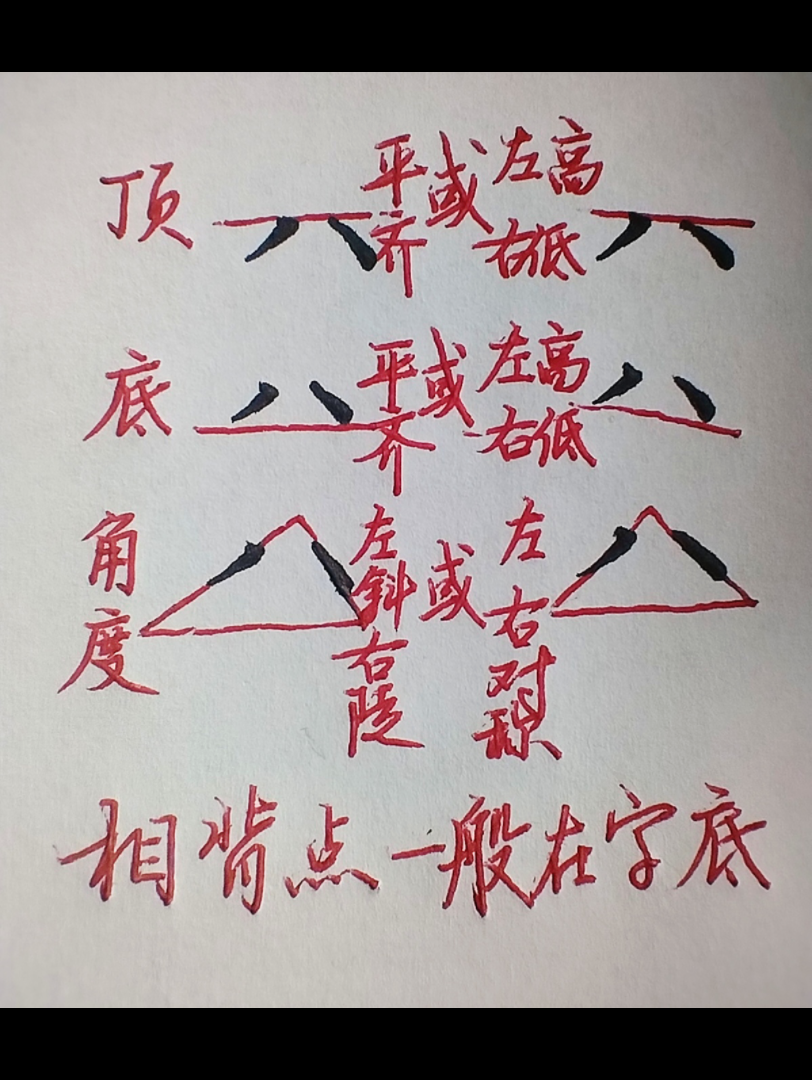 顶 平齐 或 左高右低
底 平齐 或 左高右低
角度 左斜右陡 或 左右对称
相背点一般在字底